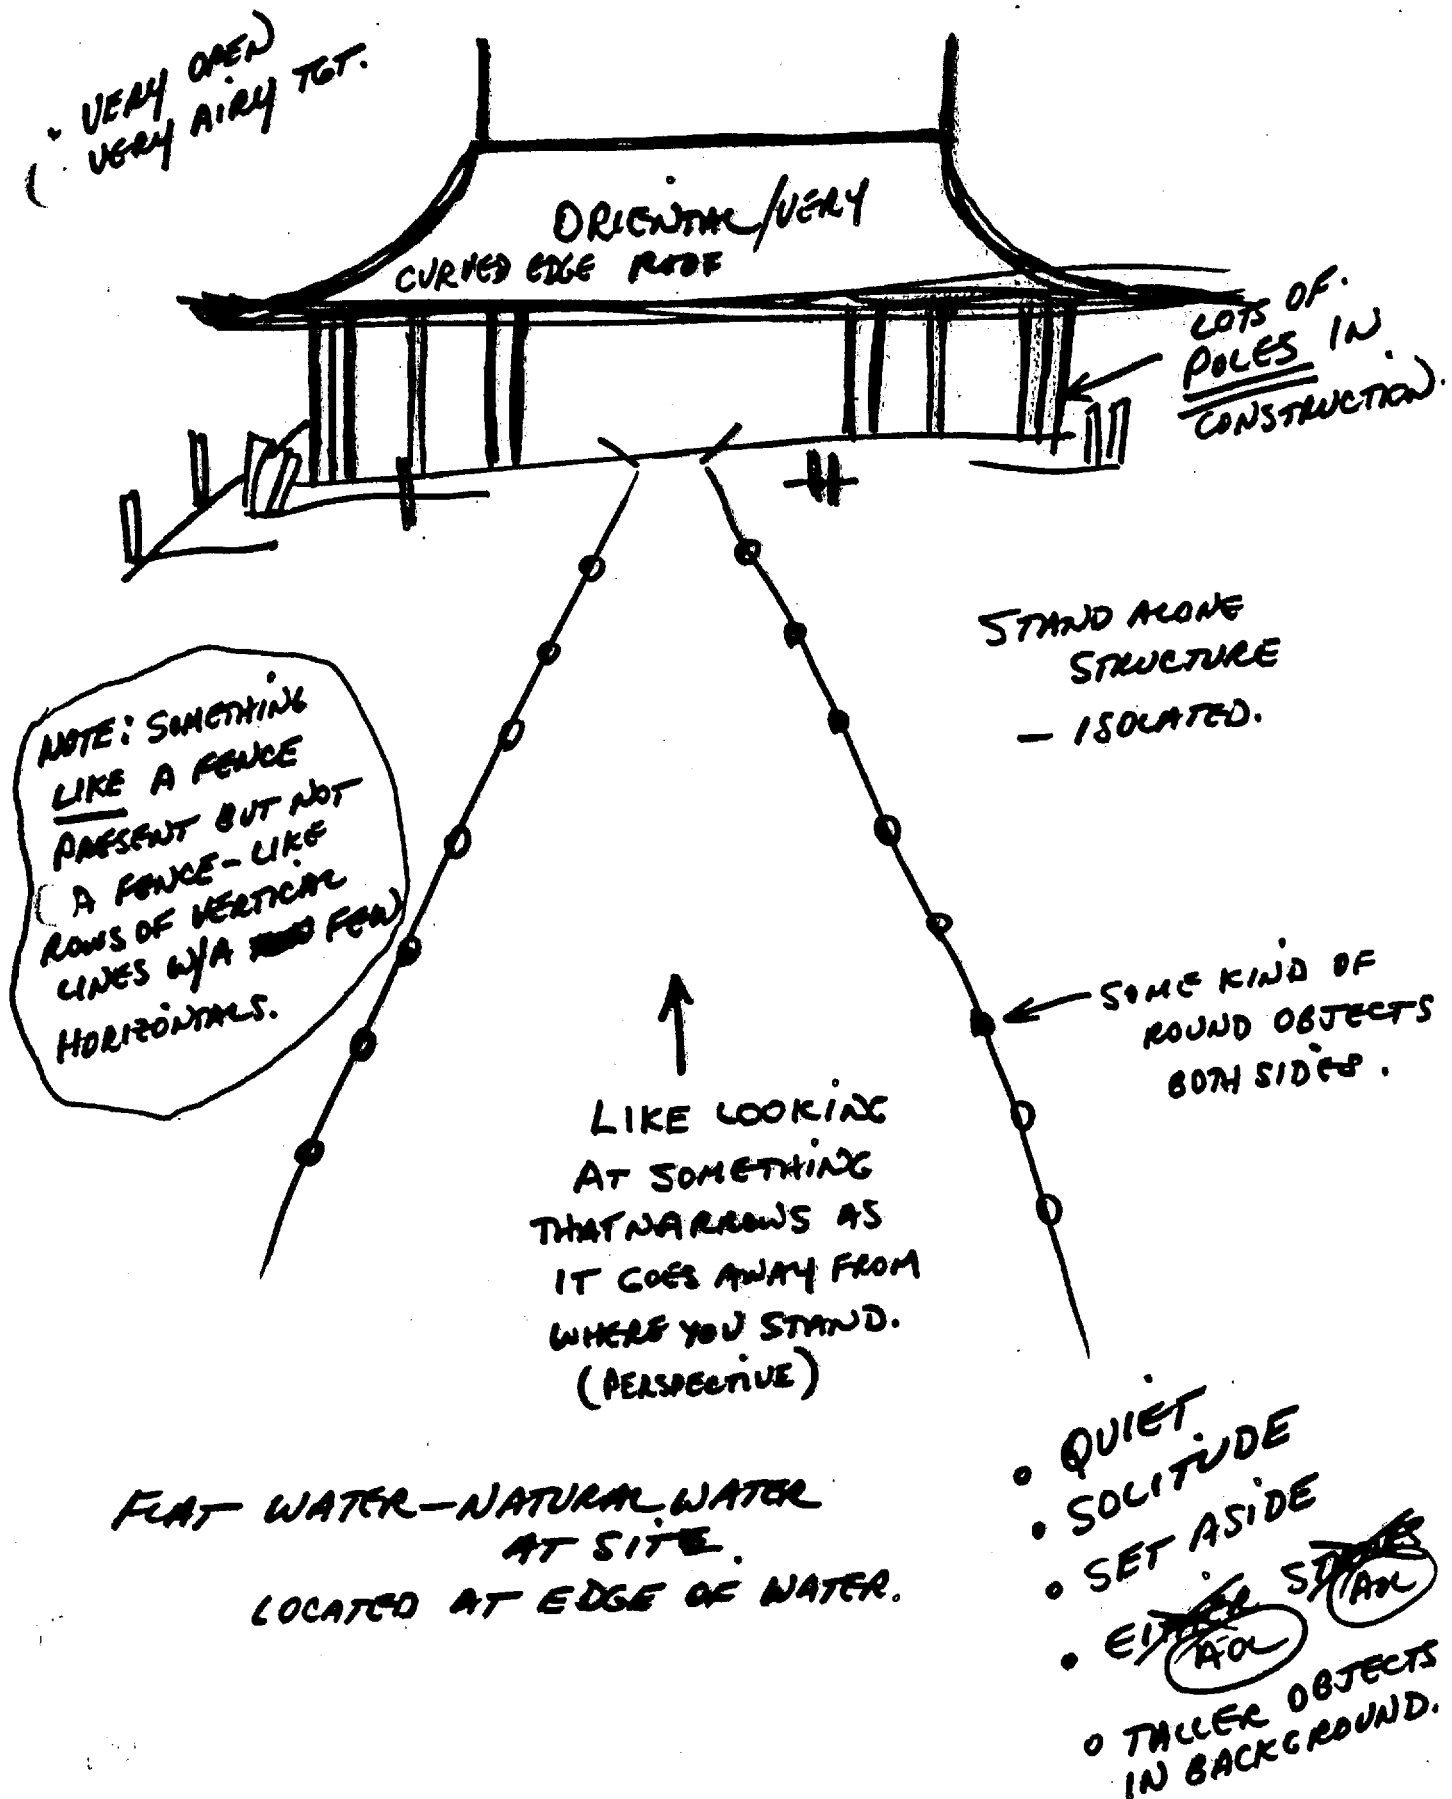 · VERY OPEN
· VERY AIRY TGT.
ORIENTAL/VERY
CURVED EDGE ROOF
LOTS OF
POLES IN
CONSTRUCTION.
STAND ALONE
STRUCTURE
— ISOLATED.
NOTE: SOMETHING
LIKE A FENCE
PRESENT BUT NOT
A FENCE-LIKE
ROWS OF VERTICAL
LINES W/A FEW
HORIZONTALS.
SOME KIND OF
ROUND OBJECTS
BOTH SIDES.
LIKE LOOKING
AT SOMETHING
THAT NARROWS AS
IT GOES AWAY FROM
WHERE YOU STAND.
(PERSPECTIVE)
FLAT WATER—NATURAL WATER
AT SITE.
LOCATED AT EDGE OF WATER.
• QUIET
• SOLITUDE
• SET ASIDE
• AOL AOL
• TALLER OBJECTS
IN BACKGROUND.